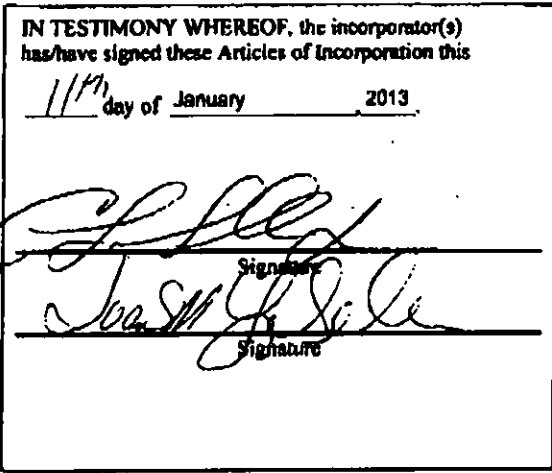 IN TESTIMONY WHEREOF, the incorporator(s)
has/have signed these Articles of Incorporation this
11th day of January 2013
Signature
Signature